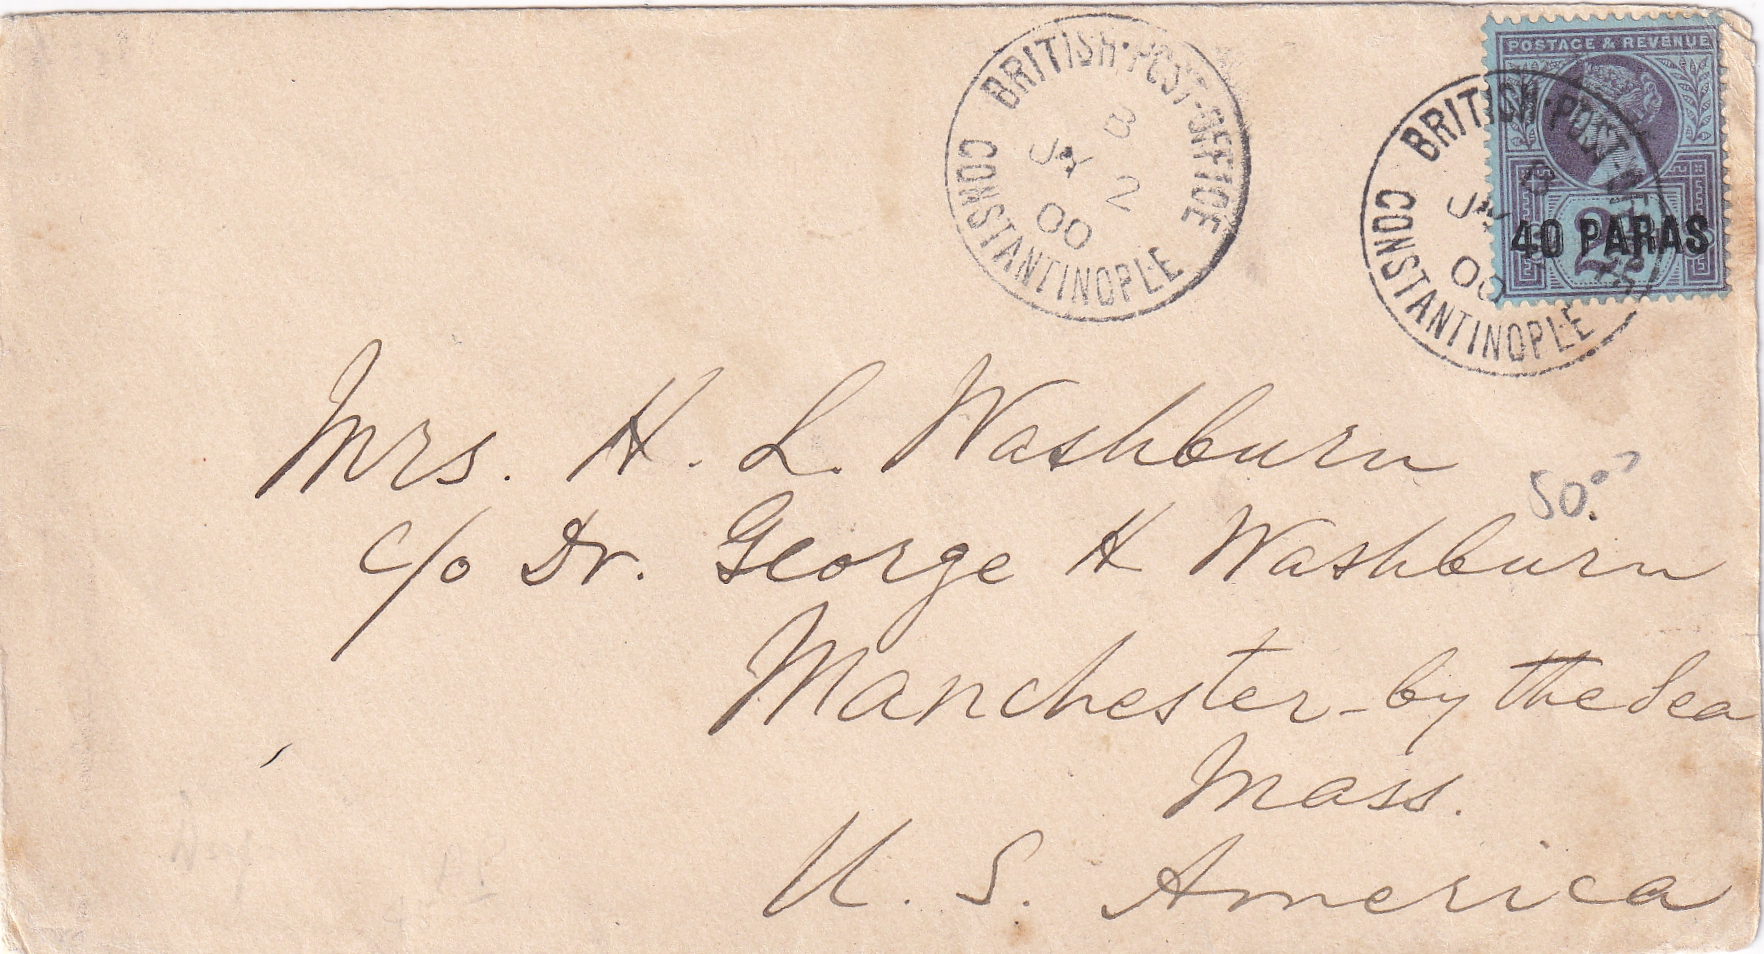 BRITISH·POST·OFFICE
B
JY 2
00
CONSTANTINOPLE
POSTAGE & REVENUE
2½
40 PARAS
BRITISH·POST OFFICE
00
CONSTANTINOPLE
Mrs. H. L. Washburn
50.00
c/o Dr. George H Washburn
Manchester-by the Sea
Mass.
U. S. America